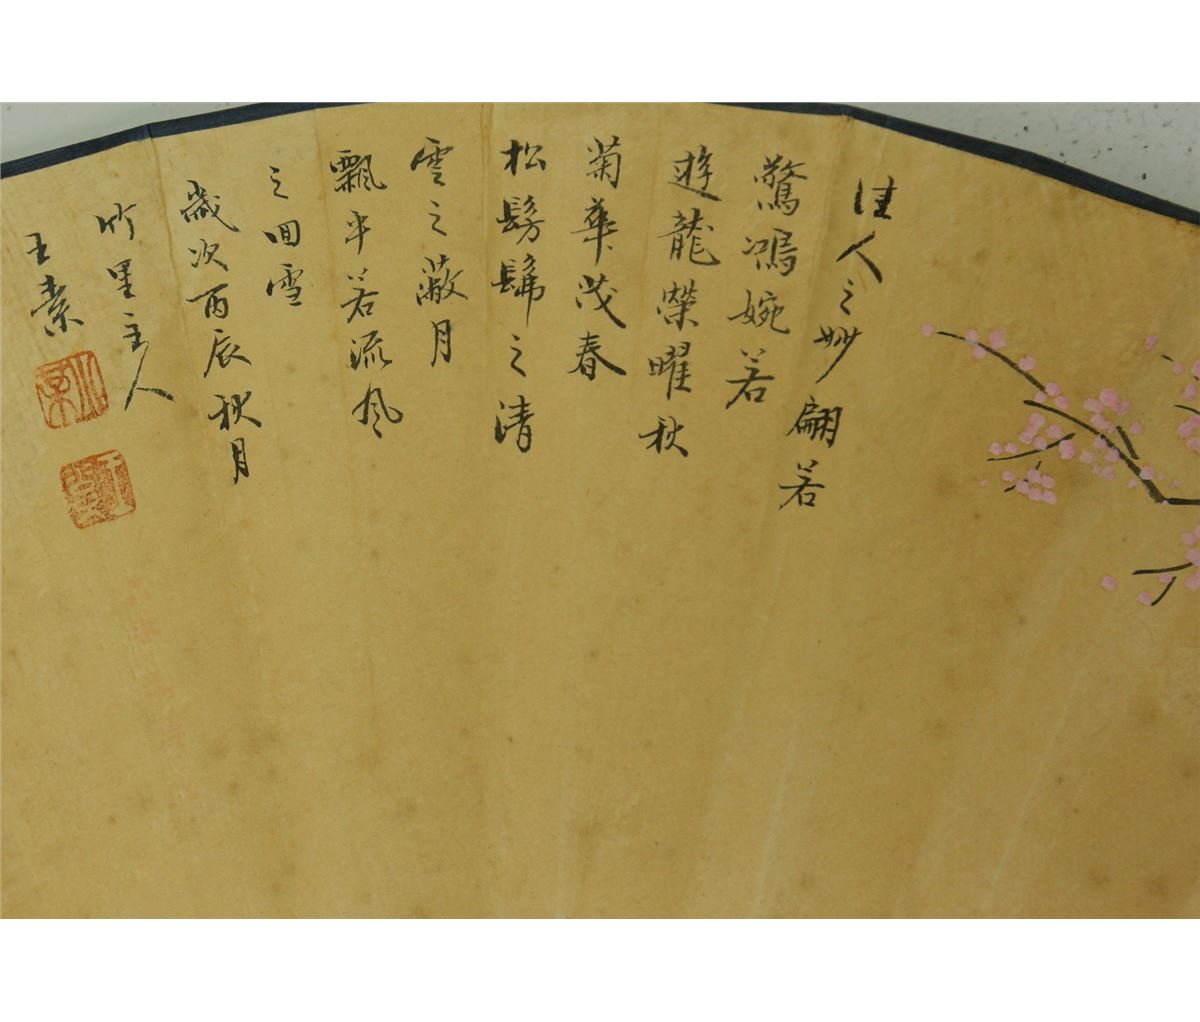 佳人之妙翩若
驚鴻婉若
遊龍榮曜秋
菊華茂春
松髣髴之清
雲之蔽月
飄半若流风
之回雪
歲次丙辰秋月
竹里主人
王素